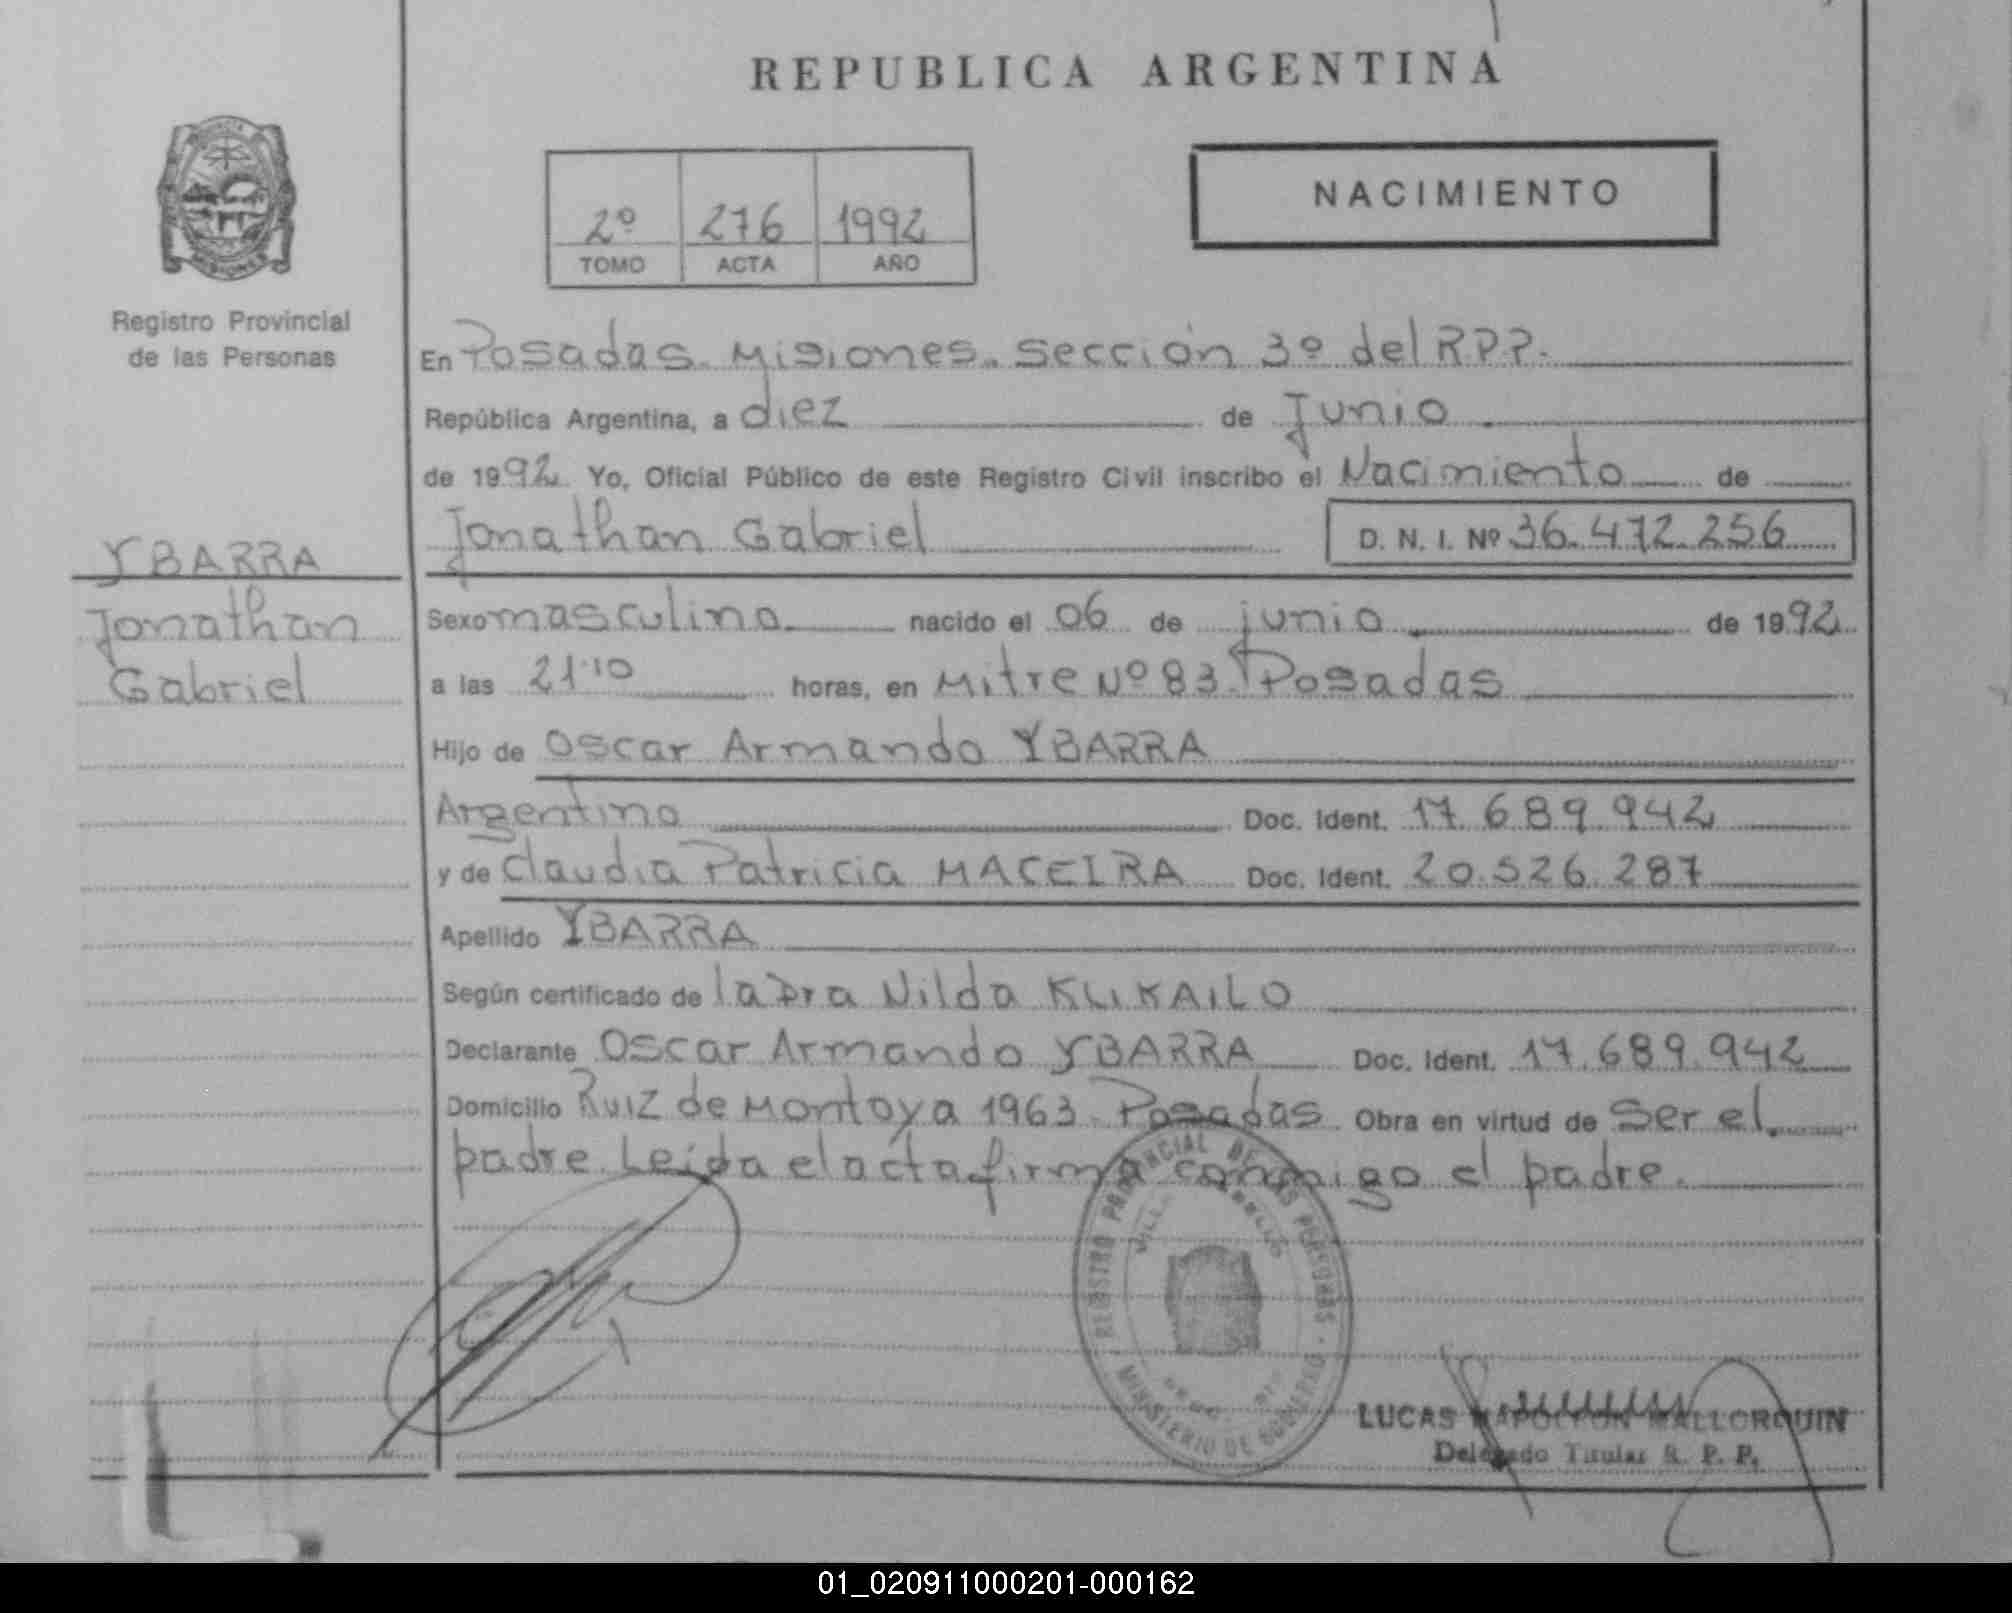 REPUBLICA ARGENTINA
2º 276 1992
TOMO ACTA AÑO
NACIMIENTO
MISIONES
Registro Provincial
de las Personas
YBARRA
Jonathan
Gabriel
En Posadas. Misiones. Sección 3º del R.P.P.
República Argentina, a diez de Junio
de 1992 Yo, Oficial Público de este Registro Civil inscribo el Nacimiento de
Jonathan Gabriel D. N. I. Nº 36.472.256
Sexo masculino nacido el 06 de junio de 1992
a las 21:10 horas, en Mitre Nº 83. Posadas
Hijo de Oscar Armando YBARRA
Argentino Doc. Ident. 17.689.942
y de Claudia Patricia MACEIRA Doc. Ident. 20.526.287
Apellido YBARRA
Según certificado de la Dra Nilda KLIKAILO
Declarante Oscar Armando YBARRA Doc. Ident. 17.689.942
Domicilio Ruiz de Montoya 1963. Posadas Obra en virtud de Ser el
padre Leida el acta firma conmigo el padre.
REGISTRO PROVINCIAL DE LAS PERSONAS
MINISTERIO DE GOBIERNO
LUCAS NAPOLEON MALLORQUIN
Delegado Titular R. P. P.
01_020911000201-000162